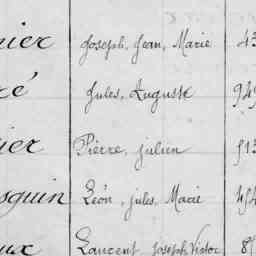 nier Joseph, Jean, Marie 43
ré Jules, Auguste 949
ier Pierre, julien 513
squin Léon, jules, Marie 454
ux Laurent, Joseph, Victor 85